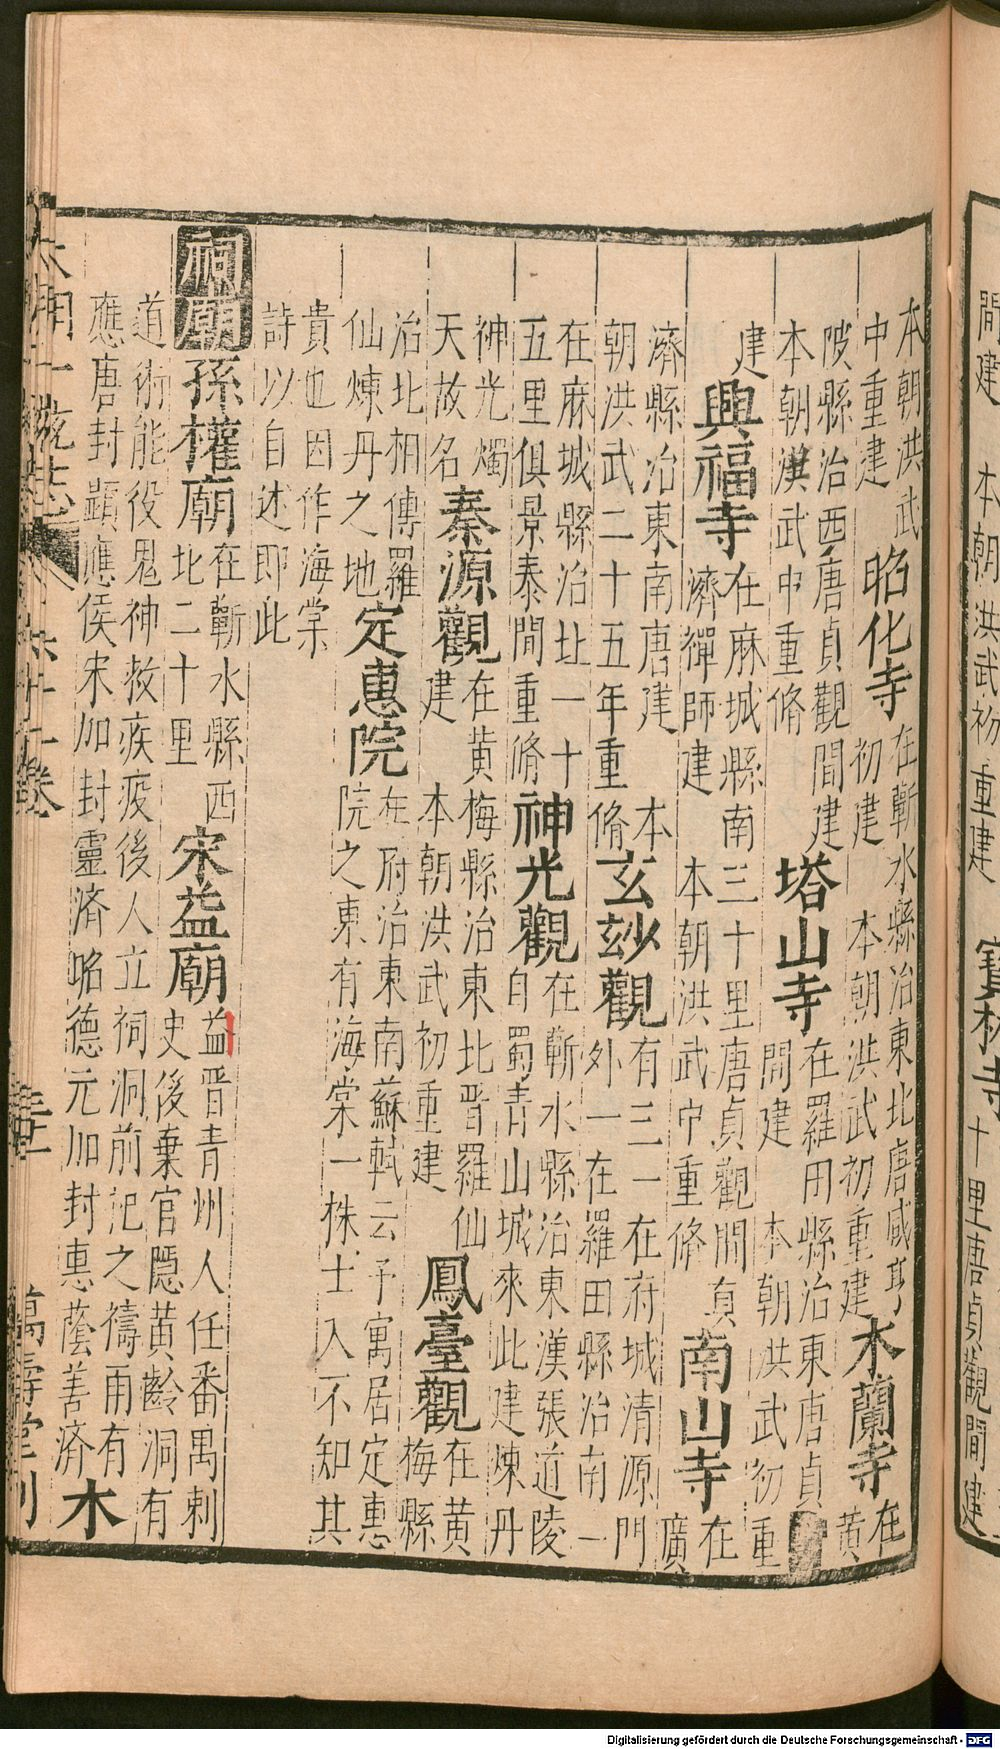 間建 本朝洪武初重建 寶林寺 十里唐貞觀間建
本朝洪武
中重建
昭化寺
在蘄水縣治東北唐咸亨
初建 本朝洪武初重建
木蘭寺
在
黄
陂縣治西唐貞觀間建
本朝洪武中重脩
塔山寺
在羅田縣治東唐貞
間建 本朝洪武初重
建
興福寺
在麻城縣南三十里唐貞觀間真
濟禪師建 本朝洪武中重脩
南山寺
在
廣
濟縣治東南唐建 本
朝洪武二十五年重脩
玄玅觀
有三一在府城清源門
外一在羅田縣治南一
在麻城縣治北一十
五里俱景泰間重脩
神光觀
在蘄水縣治東漢張道陵
自蜀青山城來此建煉丹
神光燭
天故名
秦源觀
在黄梅縣治東北晋羅仙
建 本朝洪武初重建
鳳臺觀
在黄
梅縣
治北相傳羅
仙煉丹之地
定惠院
在府治東南蘇軾云予寓居定惠
院之東有海棠一株土人不知其
貴也因作海棠
詩以自述即此
祠廟
孫權廟
在蘄水縣西
北二十里
宋益廟
益晋青州人任番禺刺
史後棄官隱黄齡洞有
道術能役鬼神救疾疫後人立祠洞前祀之禱雨有
應唐封顯應侯宋加封靈濟昭德元加封惠蔭善濟
木
大明一統志 六十一卷 萬壽堂刊
Digitalisierung gefördert durch die Deutsche Forschungsgemeinschaft - DFG